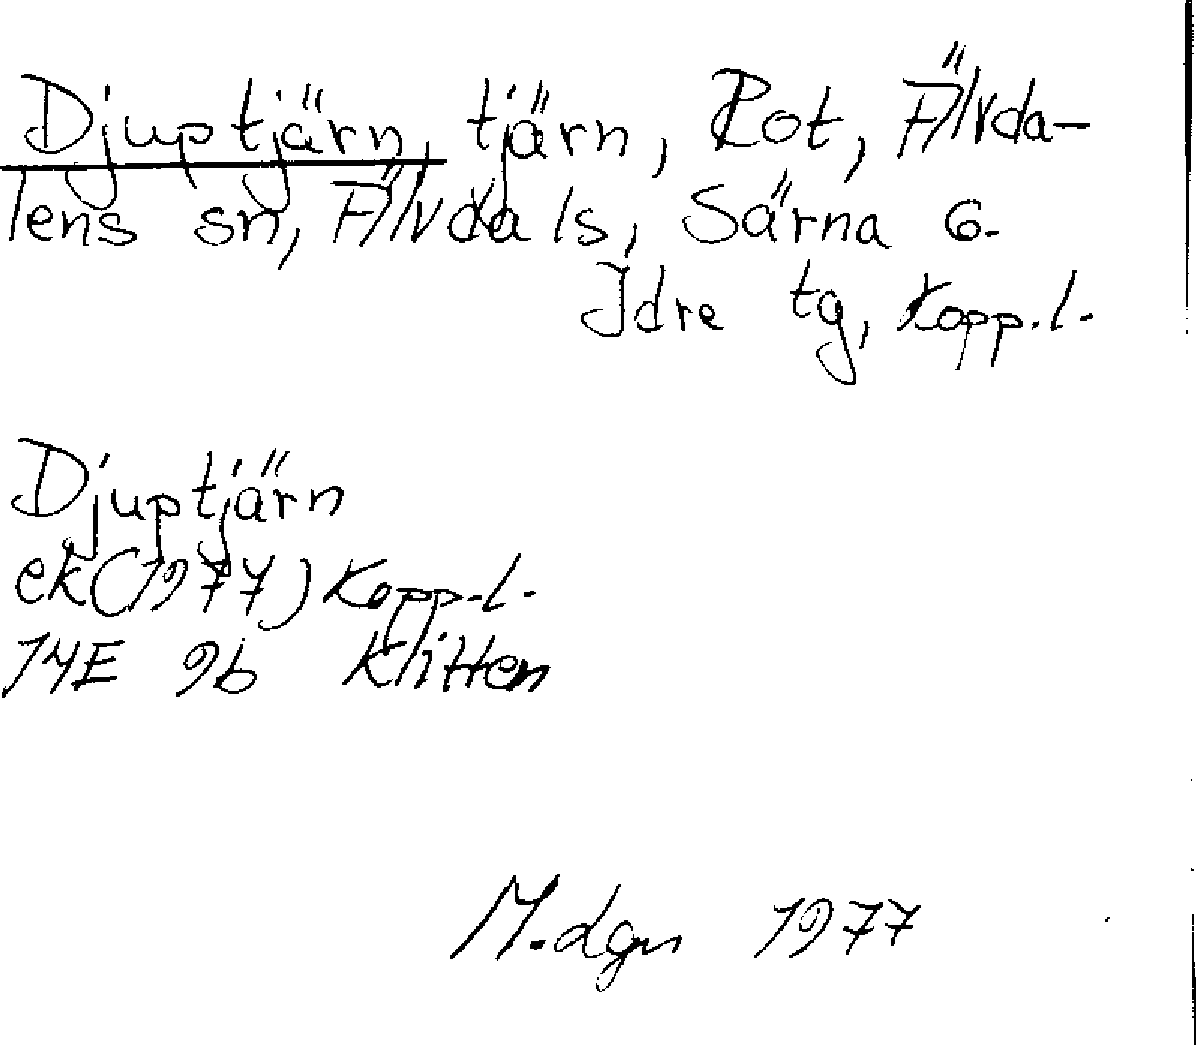 Djuptjärn, tjärn, Rot, Älvda-
lens sn, Älvdals, Särna o.
Idre tg, Kopp.l.
Djuptjärn
ek(1977) Kopp.l.
14E 9b Klitten
1977